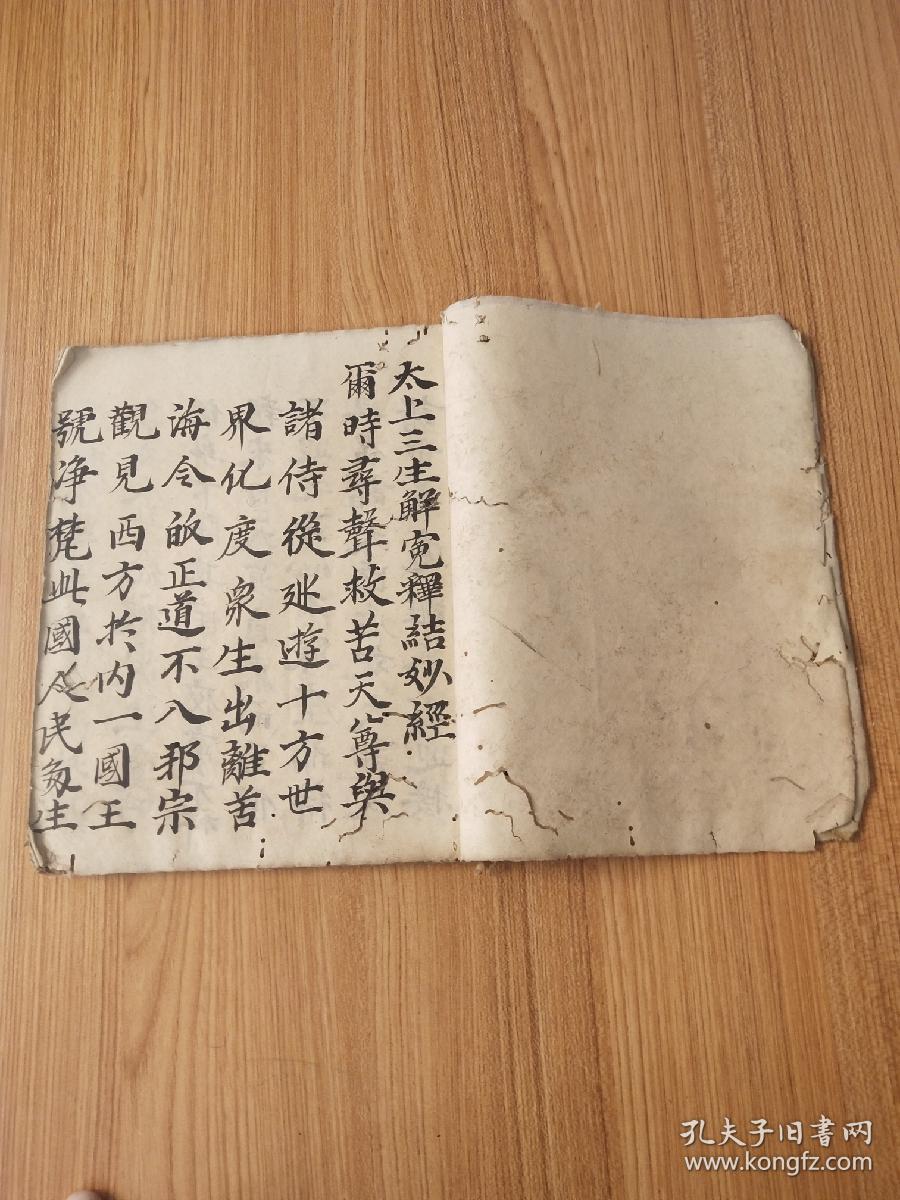 太上三生解寃釋結妙經
爾時尋聲救苦天尊與
諸侍從廵遊十方世
界化度衆生出離苦
海令皈正道不入邪宗
觀見西方扵内一國王
號净梵此國人民多生
孔夫子旧书网
www.kongfz.com